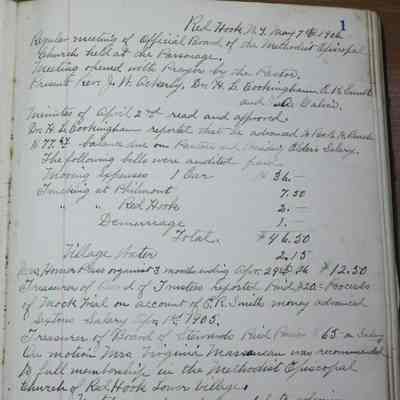 1
Red Hook N.Y. May 7th 1906
Regular meeting of Official Board of the Methodist Episcopal
Church held at the Parsonage.
Meeting opened with Prayer by the Pastor.
Present Rev. J. W. Ackerly, Drs H. L. Cookingham C. R. Smith
and
Minutes of April 2nd read and approved.
Dr. H. L. Cookingham reported that he advanced
$77.  balance due on Pastors and Presiding Elders Salary.
The following bills were audited paid.
Moving Expenses 1 Car $ 36.—
Trucking at Philmont 7.50
" " Red Hook 2.—
Demurrage 1.—
Total. $46.50
Village Water 2.15
organist 3 months ending Apr. 29th $12.50
Treasurer of Board of Trustees reported Paid $20 Proceeds
of Mock Trial on account of C. R. Smith money advanced
Sextons Salary 1st 1905.
Treasurer of Board of Stewards Paid 65 Salary
On motion Mrs Virginia was recommended
to full membership in the Methodist Episcopal
Church of Red Hook Lower Village.